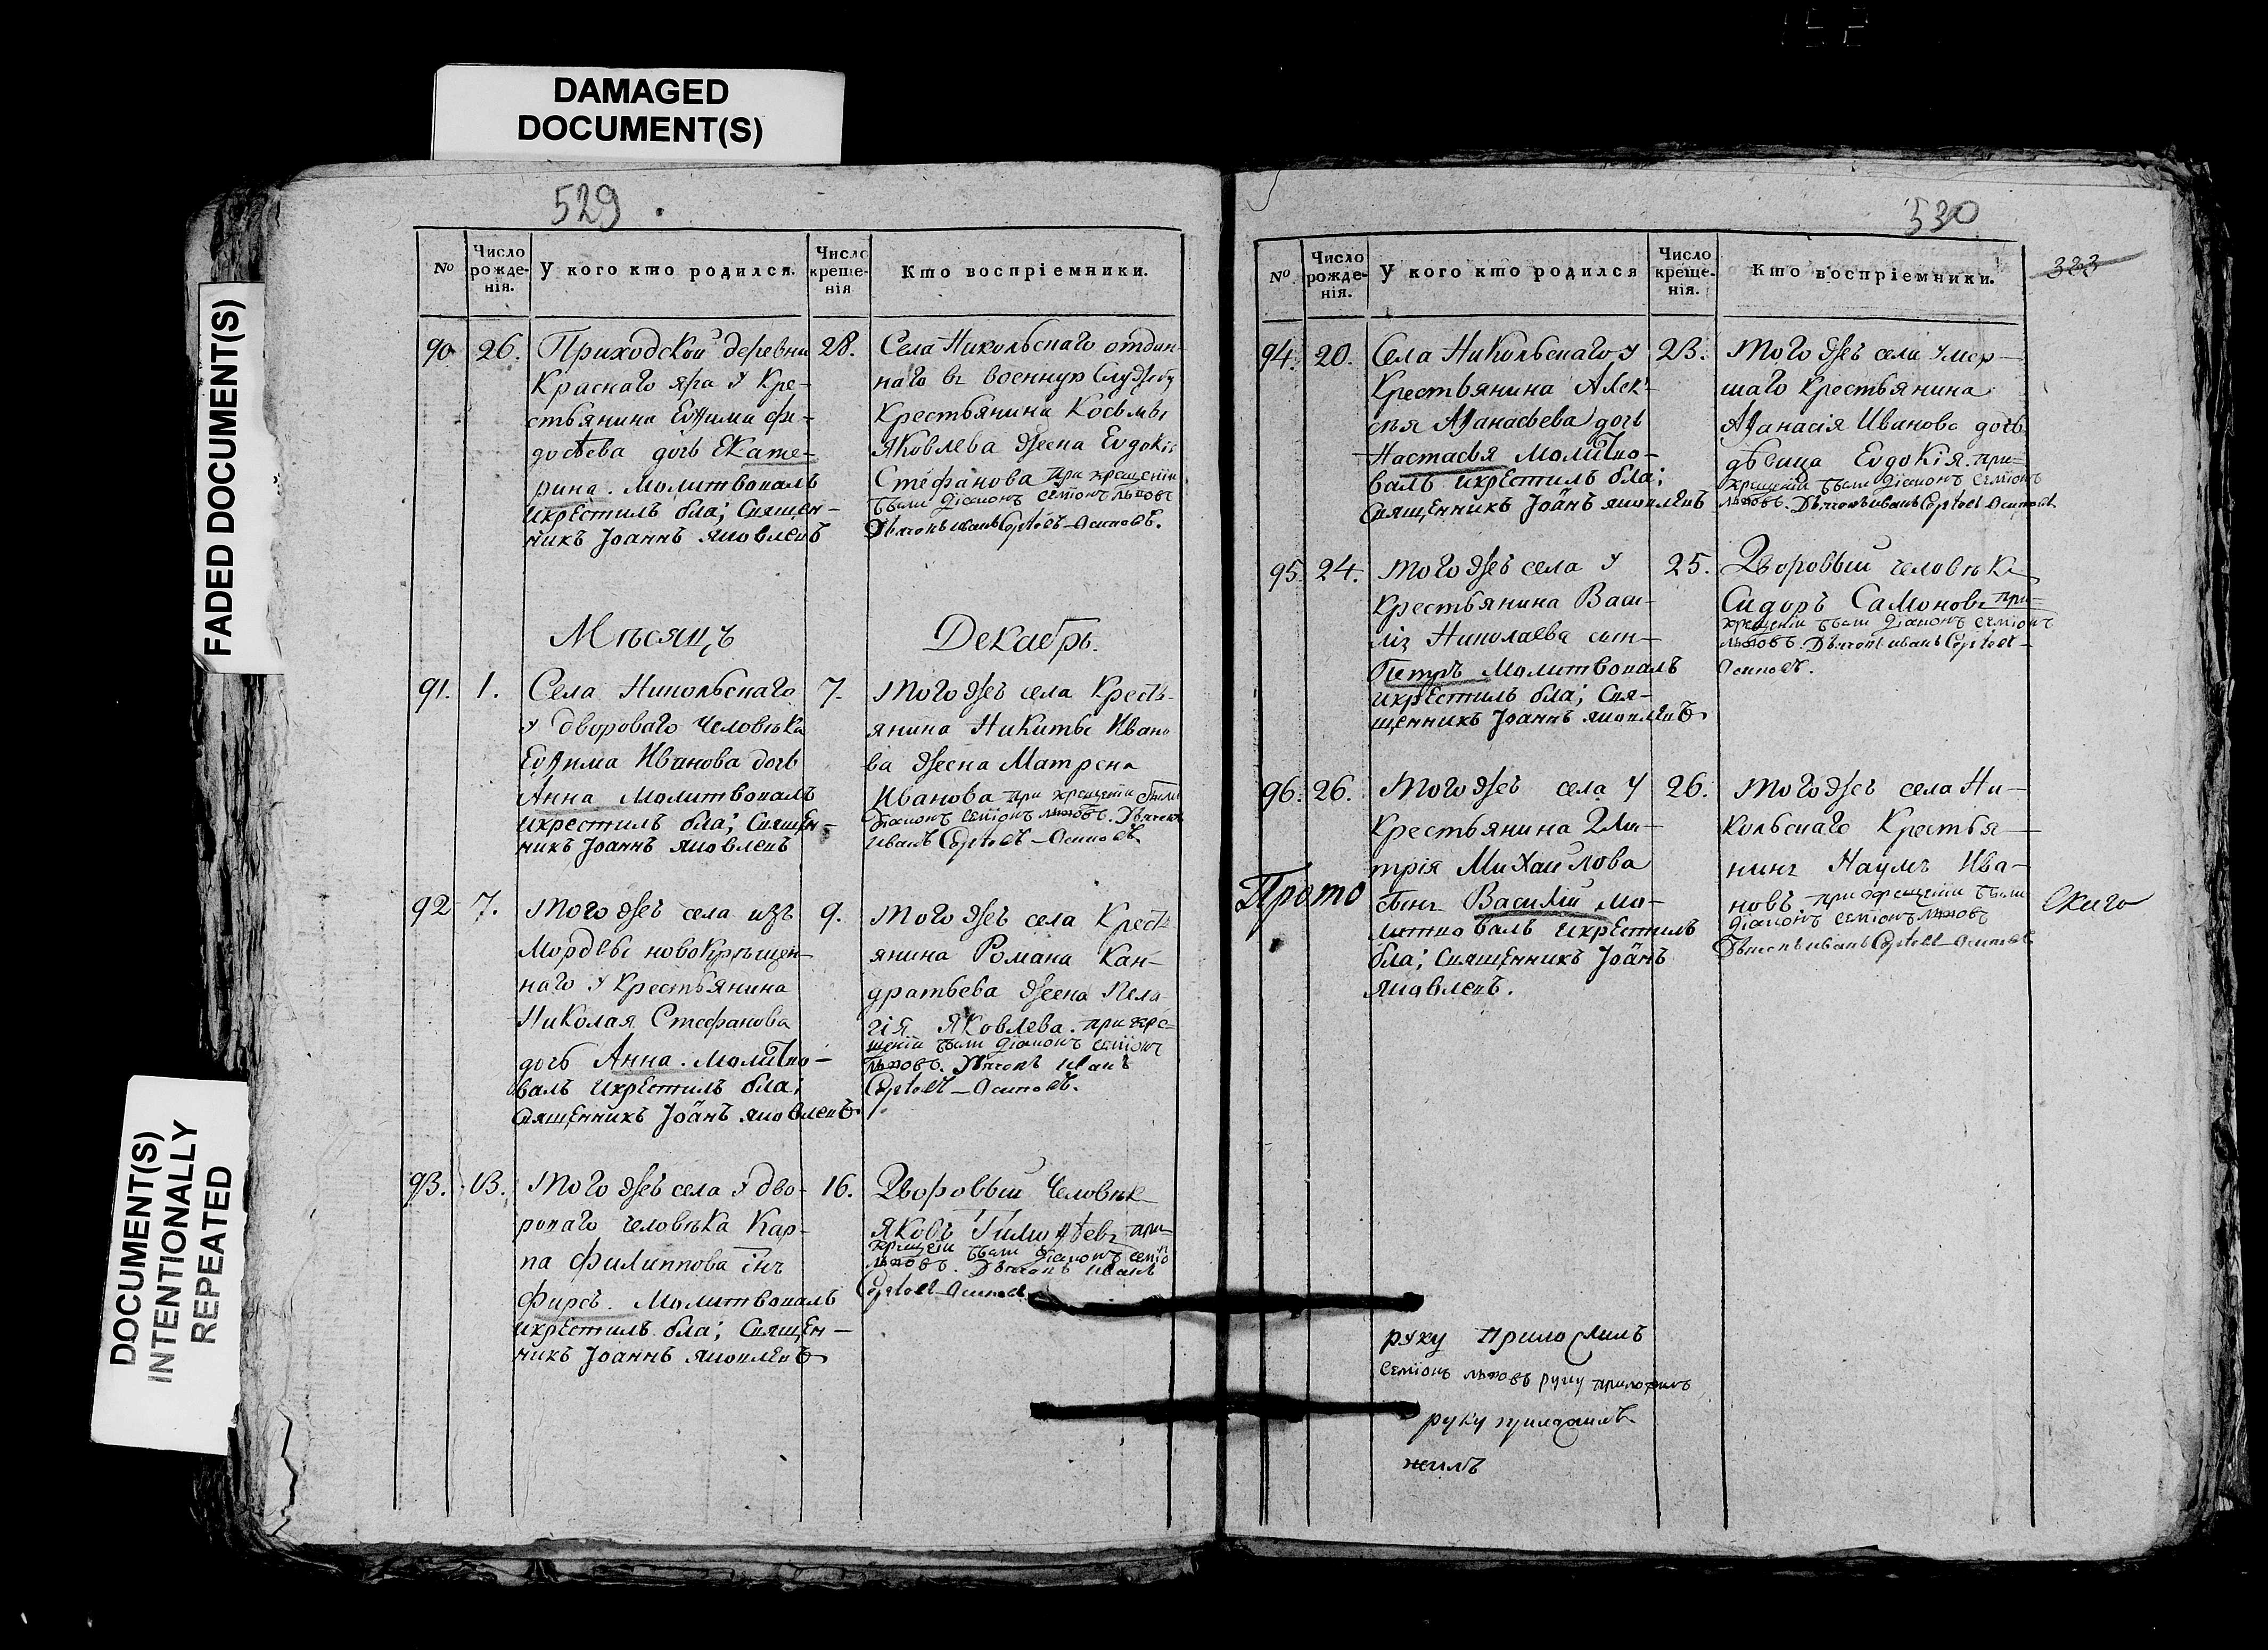 DAMAGED
DOCUMENT(S)
FADED DOCUMENT(S)
DOCUMENT(S)
INTENTIONALLY
REPEATED
529
№
Число рожде-нія.
У кого кто родился.
Число креще-нія
Кто воспріемники.
90 26. Приходской деревни
Краснаго яра у Кре-
стьянина Евѳима Фи-
досѣева дочь Екате-
рина. Молитвовалъ
икрестилъ бла; Священ-
никъ Іоаннъ яковлевъ
28. Села Никольскаго отдан-
наго въ военную службу
Крестьянина Косьмы
Яковлева жена Евдокія
Стефанова при крещеніи
были діаконъ Семіонъ львовъ
Дьячокъ иванъ Сергѣевъ Осиповъ.
Мѣсяцъ
Декабрь.
91. 1. Села Никольскаго
у двороваго человѣка
Евѳима Иванова дочь
Анна Молитвовалъ
икрестилъ бла; Священ-
никъ Іоаннъ яковлевъ
7. Того жъ села Кресть-
янина Никиты Ивано
ва жена Матрена
Иванова при крещеніи были
діаконъ Семіонъ львовъ. Дьячокъ
иванъ Осиповъ
92 7. Того жъ села изъ
Мордвы новокрещен-
наго у Крестьянина
Николая Стефанова
дочь Анна. Молитво-
валъ икрестилъ бла;
Священникъ Іоанъ яковлевъ
9. Того жъ села Кресть
янина Романа Кан-
дратьева жена Пела
гія Яковлева. при кре-
щеніи были діаконъ семіонъ
львовъ. Дьячокъ иванъ
Осиповъ.
93. 13. Того жъ села у дво-
роваго человѣка Кар-
па Филиппова
Фирсъ. Молитвовалъ
икрестилъ бла; Священ-
никъ Іоаннъ яковлевъ
16. Дворовый человѣкъ
Яковъ Тимоѳѣевъ при
крещеніи были діаконъ семіо
львовъ. Дьячокъ иванъ
Осиповъ
530
323
№
Число рожде-нія.
У кого кто родился
Число креще-нія.
Кто воспріемники.
94. 20. Села Никольскаго у
Крестьянина Алек-
сѣя Аѳанасьева дочь
Настасья Молитво-
валъ икрестилъ бла;
Священникъ Іоанъ яковлевъ
23. Того жъ села умер-
шаго крестьянина
Аѳанасія Иванова дочь
дѣвица Евдокія. при-
крещеніи были діаконъ Семіонъ
львовъ. Дьячокъ иванъ Осиповъ
95. 24. Того жъ села у
Крестьянина Васи-
лія Николаева сынъ
Петръ Молитвовалъ
икрестилъ бла; Свя-
щенникъ Іоаннъ яковлевъ
25. Дворовый человѣкъ
Сидоръ Самоновъ при-
крещеніи были діаконъ Семіонъ
львовъ. Дьячокъ иванъ
Осиповъ.
96. 26. Того жъ села у
Крестьянина Дми-
трія Михайлова
сынъ Василій мо-
литвовалъ икрестилъ
бла; Священникъ Іоанъ
яковлевъ.
26. Того жъ села Ни-
кольскаго Крестья-
нинъ Наумъ Ива-
новъ. при крещеніи были
діаконъ семіонъ львовъ
Дьячокъ иванъ Осиповъ
Прото
руку приложилъ
Семіонъ львовъ руку приложилъ
руку приложилъ
жилъ